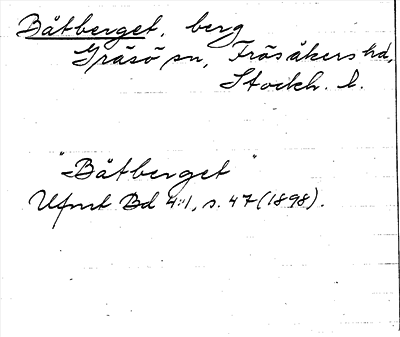 Båtberget, berg
Gräsö sn, Frösåkers hd,
Stockh. l.
"Båtberget"
Ufmt Bd 4:1, s. 47 (1898).